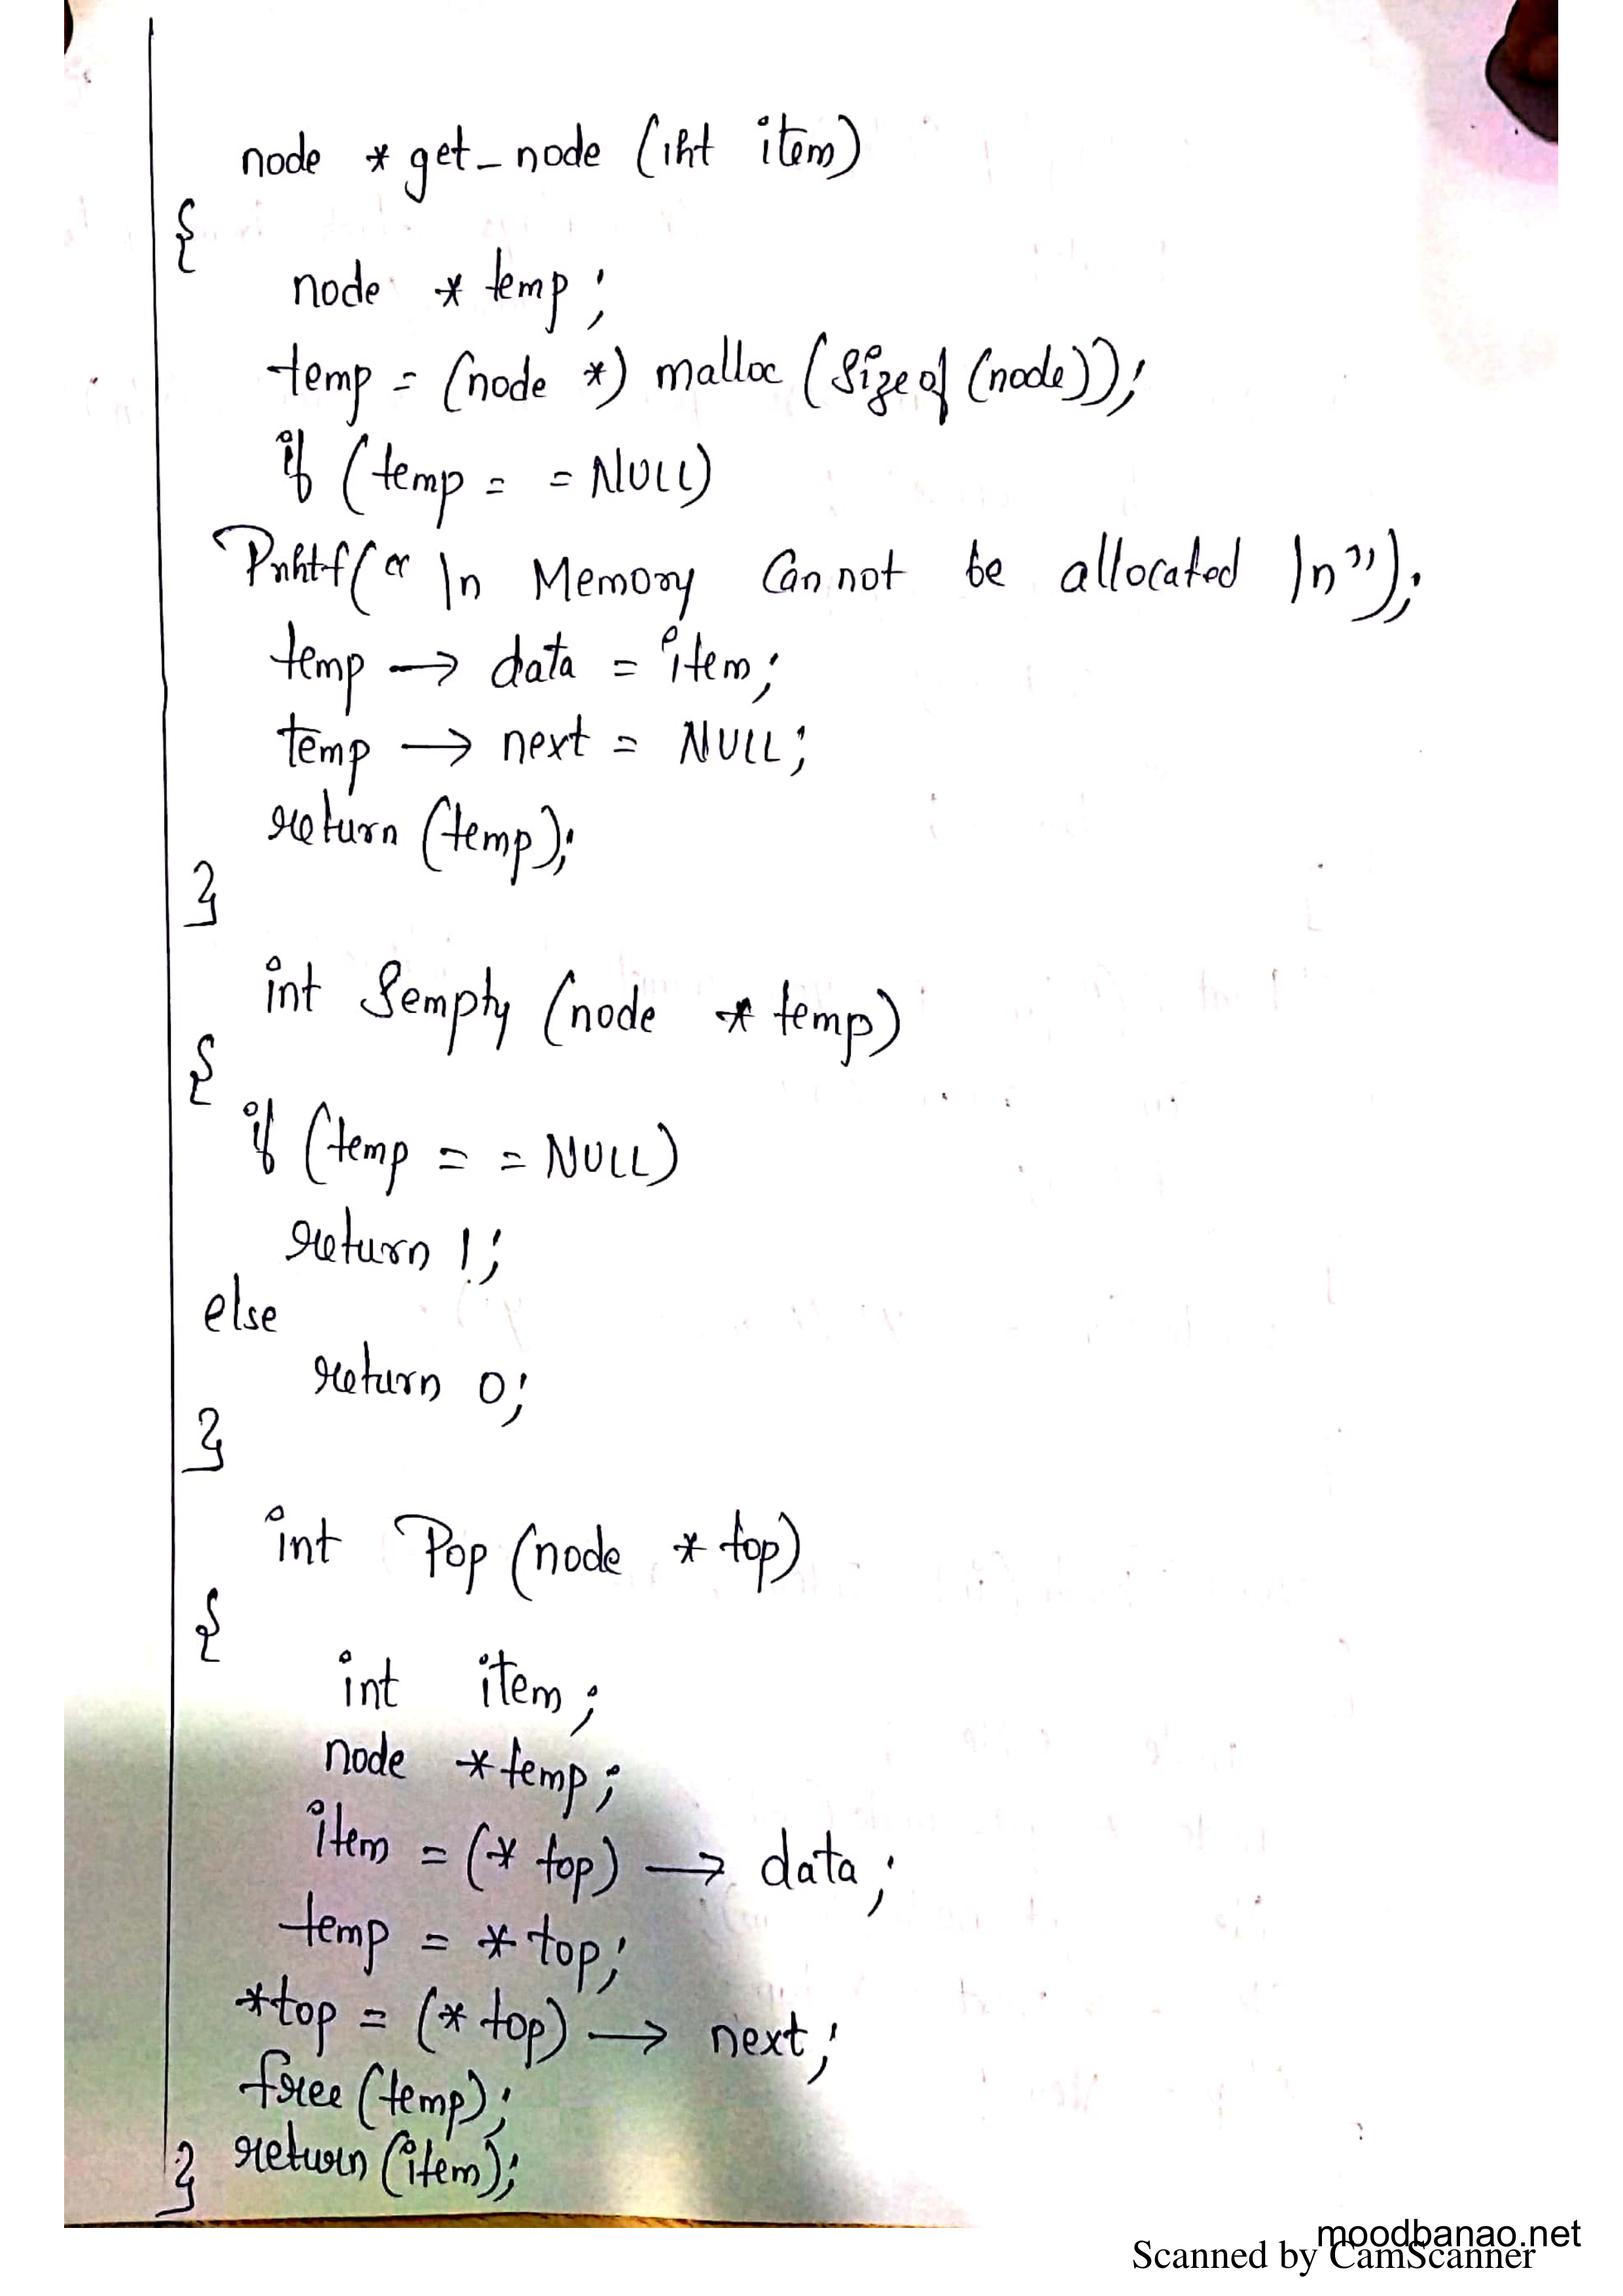 node * get_node (int item)
{
node * temp;
temp = (node *) malloc (sizeof (node));
if (temp = = NULL)
Printf(" \n Memory Cannot be allocated \n");
temp → data = item;
temp → next = NULL;
return (temp);
}
int Sempty (node * temp)
{
if (temp = = NULL)
return 1;
else
return 0;
}
int Pop (node * top)
{
int item;
node * temp;
item = (* top) → data;
temp = * top;
*top = (* top) → next;
free (temp);
} return (item);
moodbanao.net
Scanned by CamScanner